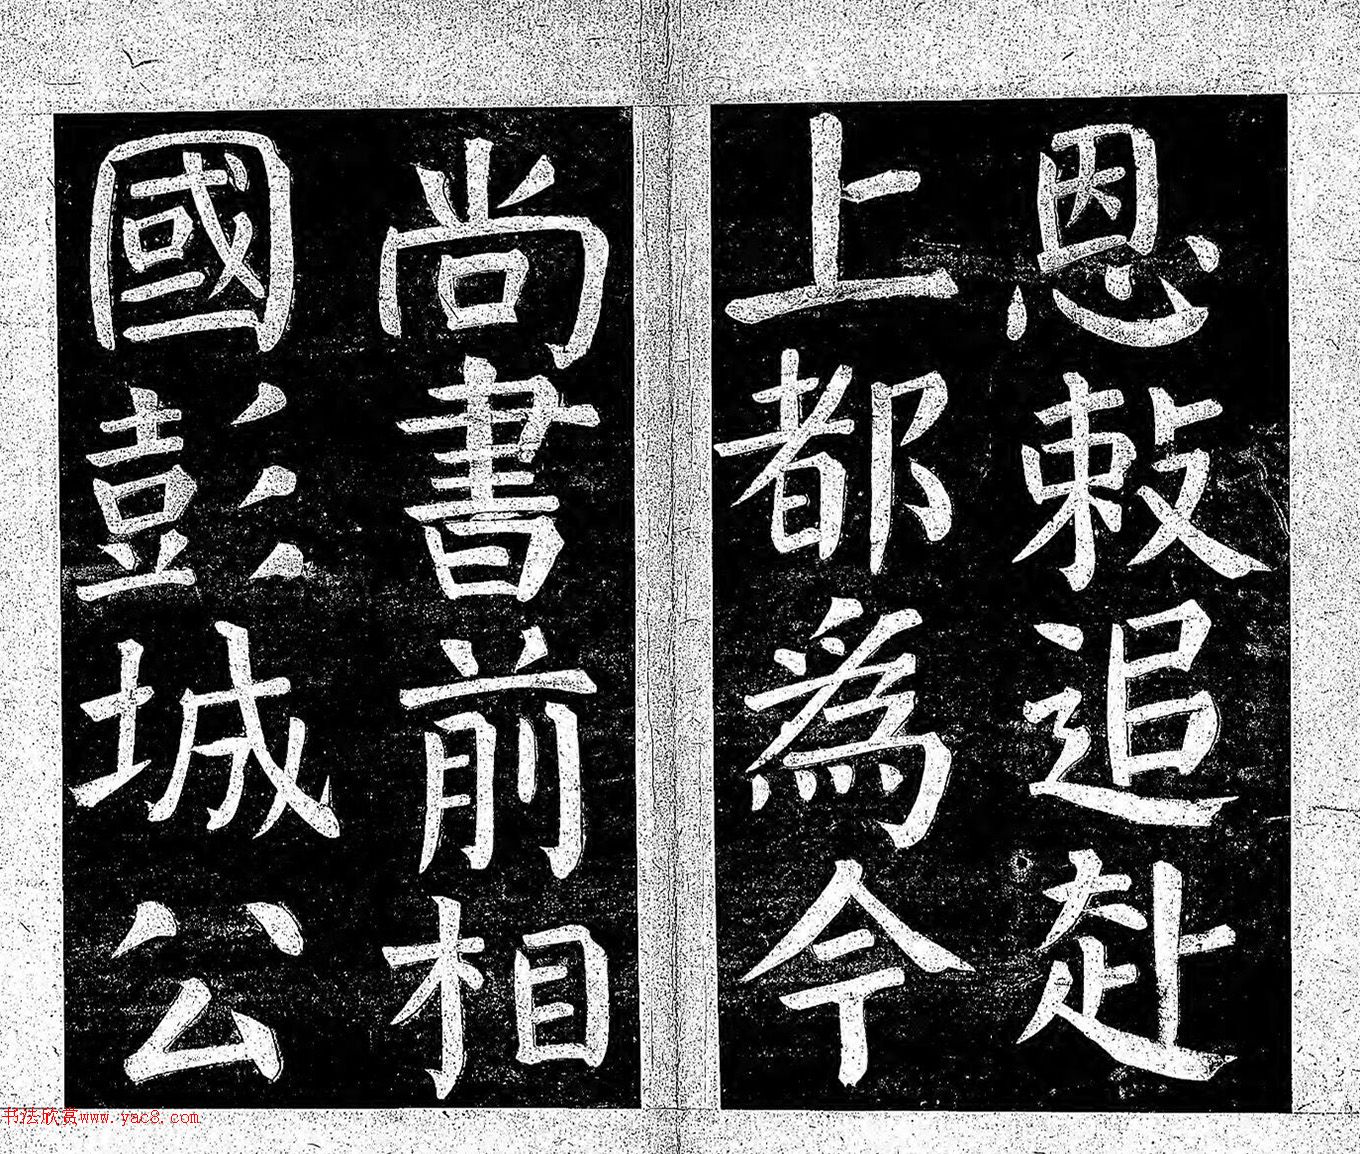 恩敕追赴
上都為今
尚書前相
國彭城公
书法欣赏www.yac8.com